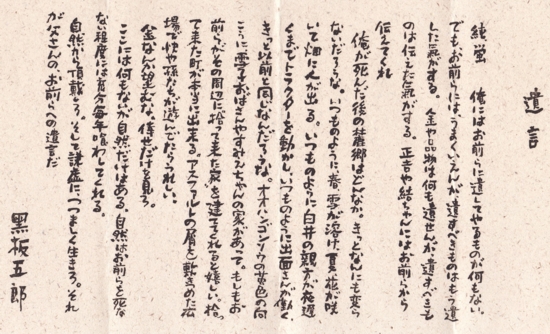 遺言
純、蛍　俺にはお前らに遺してやるものが何もない。
でもお前らには、うまくいえんが遺すべきものはもう遺
した氣がする。金や品物は何も遺せんが、遺すべきも
のは伝えた氣がする。正吉や結ちゃんにはお前らから
伝えてくれ
俺が死んだ後の麓郷はどんなか。きっとなんにも変ら
ないだろうな。いつものように春、雪が溶け、夏、花が咲
いて畑に人が出る。いつものように白井の親方が夜遅
くまでトラクターを動かし、いつものように出面さんが働く
きっと以前と同じなんだろうな。オオハンゴンソウの黄色の向
こうに雪子おばさんやすみえちゃんの家があって。もしもお
前らがその周辺に拾って来た家を建ててくれると嬉しい。拾っ
て来た町が本当に出来る。アスファルトの屑を敷きつめた広
場で快や孫たちが遊んでたらうれしい。
金なんか望むな。倖せだけを見ろ。
ここには何もないが自然だけはある。自然はお前らを死な
ない程度には充分毎年喰わしてくれる。
自然から頂戴しろ。そして謙虚に、つつましく生きろ。それ
が父さんの、お前らへの遺言だ
黒板五郎